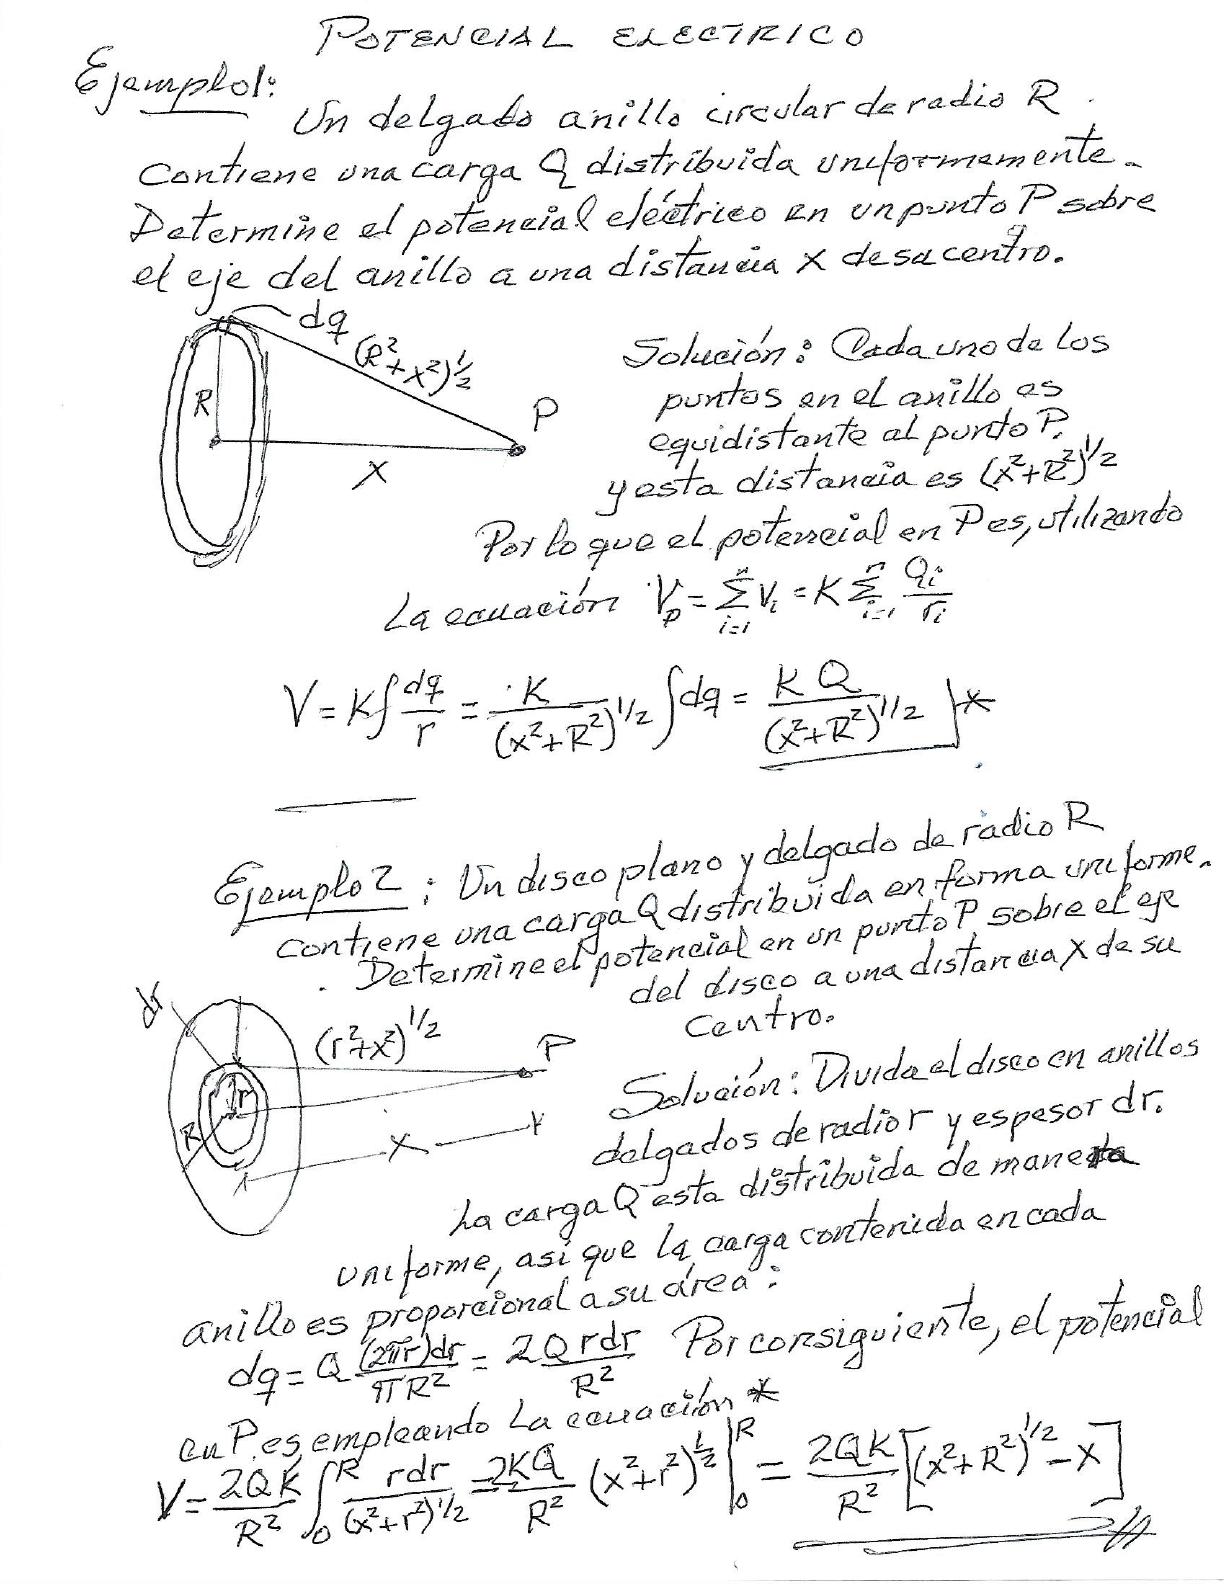 POTENCIAL ELECTRICO
Ejemplo1:
Un delgado anillo circular de radio R
contiene una carga Q distribuida uniformemente.
Determine el potencial eléctrico en un punto P sobre
el eje del anillo a una distancia x de su centro.
dq
(R²+x²)^½
R
P
x
Solución: Cada uno de los
puntos en el anillo es
equidistante al punto P.
y esta distancia es (x²+R²)^1/2
Por lo que el potencial en P es, utilizando
La ecuación V_p = Σ_{i=1}^{n} V_i = K Σ_{i=1}^{n} Q_i/r_i
V = K∫ dq/r = K/(x²+R²)^1/2 ∫dq = KQ/(x²+R²)^1/2 *
Ejemplo 2: Un disco plano y delgado de radio R
contiene una carga Q distribuida en forma uniforme.
Determine el potencial en un punto P sobre el eje
del disco a una distancia x de su
centro.
dr
(r²+x²)^1/2
P
r
R
x
Solución: Divida el disco en anillos
delgados de radio r y espesor dr.
La carga Q esta distribuida de manera
uniforme, asi que la carga contenida en cada
anillo es proporcional a su área:
dq = Q (2πr)dr/πR² = 2Qrdr/R² Por consiguiente, el potencial
en P. es, empleando La ecuación *
V = 2QK/R² ∫_0^R rdr/(x²+r²)^1/2 = 2KQ/R² (x²+r²)^½ |_0^R = 2QK/R² [(x²+R²)^1/2 - x]